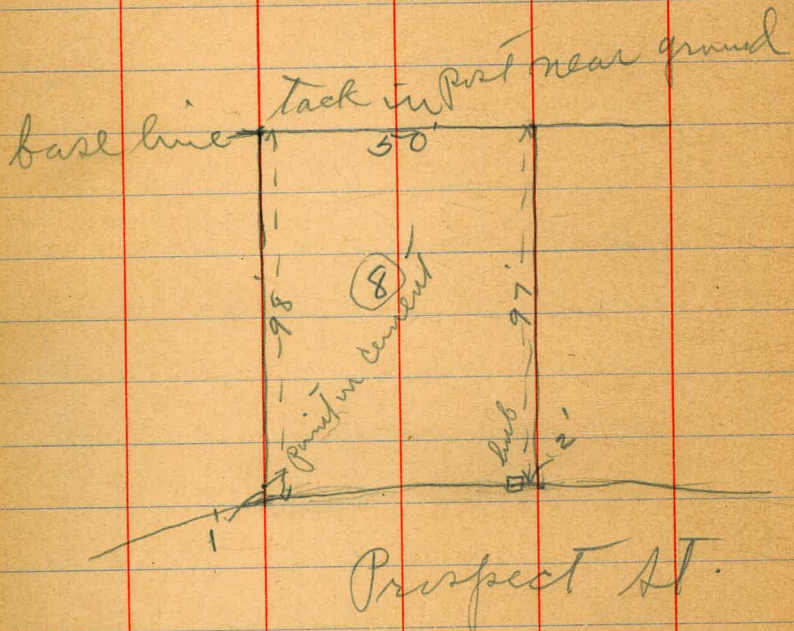 tack in Post near ground
base line
50'
8
98'
97'
Point in cement
hub
2'
1'
Prospect St.